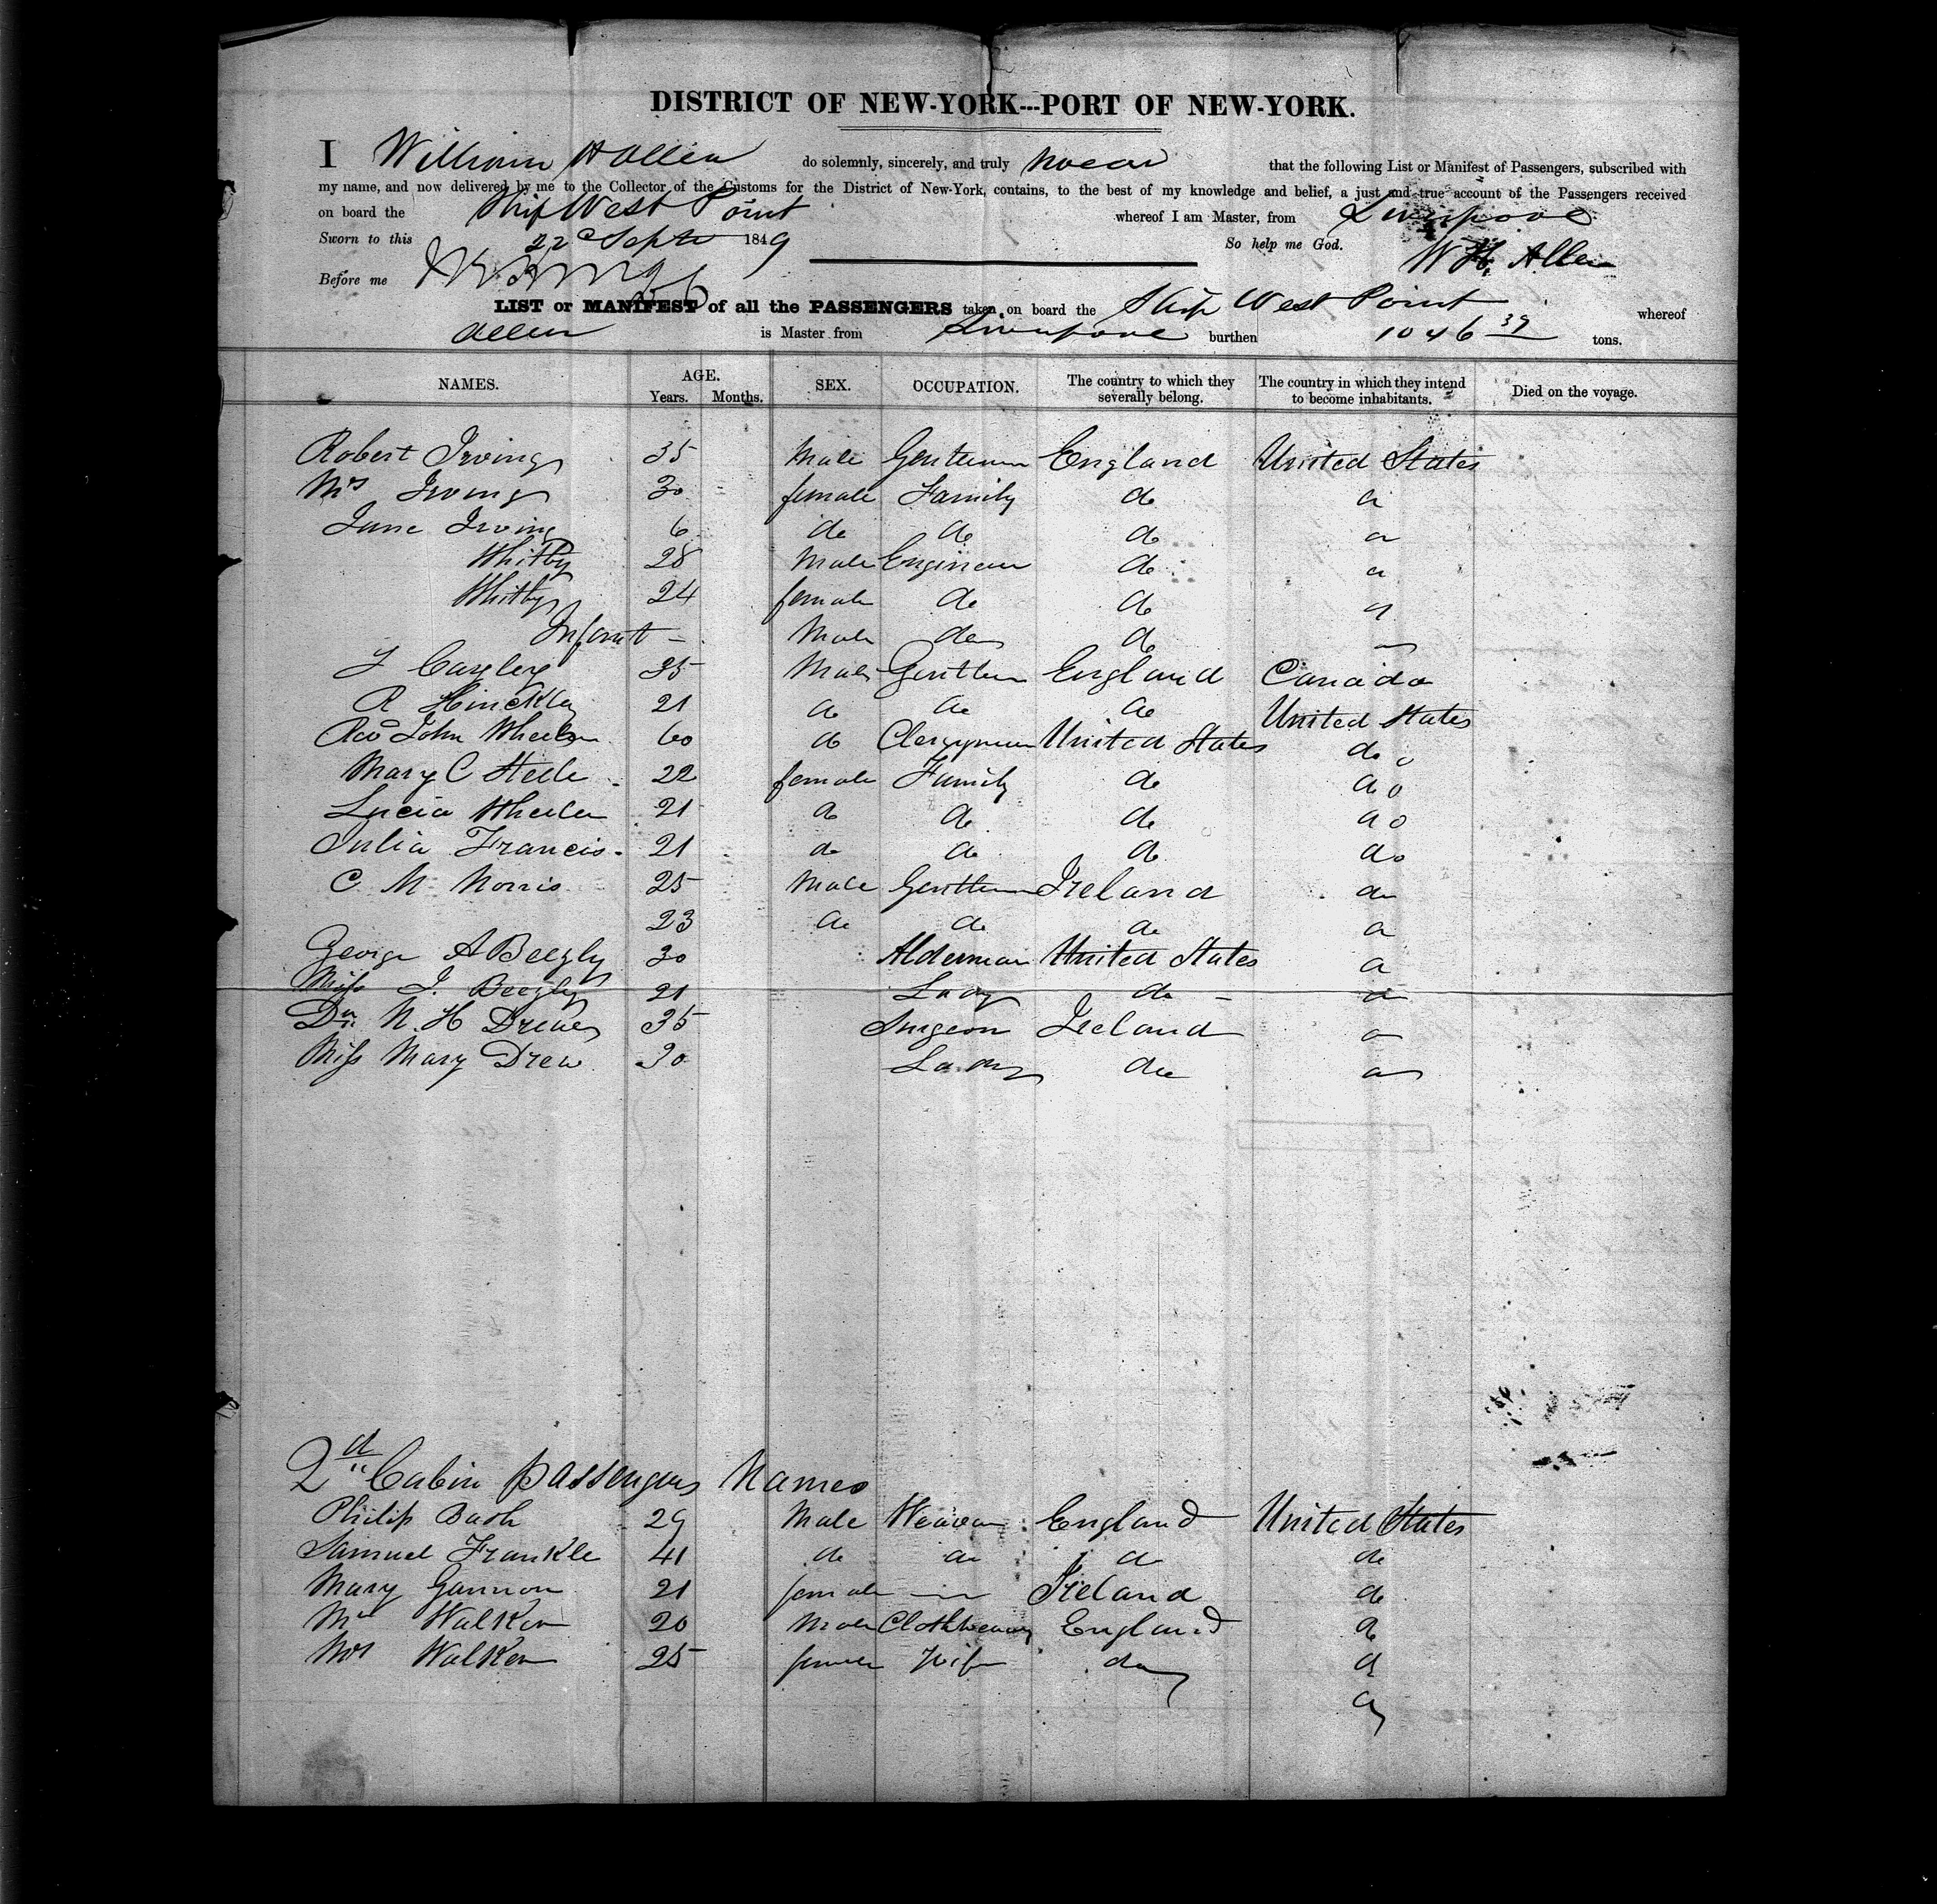 DISTRICT OF NEW-YORK---PORT OF NEW-YORK.
I William H Allen do solemnly, sincerely, and truly swear that the following List or Manifest of Passengers, subscribed with
my name, and now delivered by me to the Collector of the Customs for the District of New-York, contains, to the best of my knowledge and belief, a just and true account of the Passengers received
on board the Ship West Point whereof I am Master, from Liverpool
Sworn to this 22d Septr 1849 So help me God.
Before me W H. Allen
LIST or MANIFEST of all the PASSENGERS taken on board the Ship West Point whereof
Allen is Master from Liverpool burthen 1046 39 tons.
NAMES. AGE. Years. Months. SEX. OCCUPATION. The country to which they severally belong. The country in which they intend to become inhabitants. Died on the voyage.
Robert Irving 35 Male Gentleman England United States
Mrs Irving 30 female Family do do
Jane Irving 6 do do do do
Whitby 28 Male Engineer do do
Whitby 24 female do do do
Infant - Male do do
35 Male Gentlem England Canada
R Hinckley 21 do do do United States
Revd John Wheeler 60 do Clergyman United States do
Mary C Steele 22 female Family do do
Lucia Wheeler 21 do do do do
Julia Francis 21 do do do do
C M Norris 25 Male Gentleman Ireland do
23 do do do do
George A Beegly 30 Alderman United States do
Miss J. Beegly 21 Lady do do
Dr. N. H Drew 35 Surgeon Ireland do
Miss Mary Drew 30 Lady do do
2d Cabin passengers Names
Philip Bash 29 Male Weaver England United States
Samuel Frankle 41 do do do do
Mary Gannon 21 female Ireland do
Mr Walker 20 Male Clothweaver England do
Mrs Walker 25 female Wife do do
do